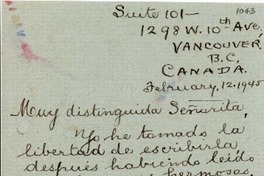 1043
Suite 101-
1298 W. 10th Ave,
VANCOUVER,
B.C,
CANADA.
February, 12, 1945
Muy distinguida Señorita,
Yo he tomado la
libertad de escribirla
después habiendo leído
hermosas